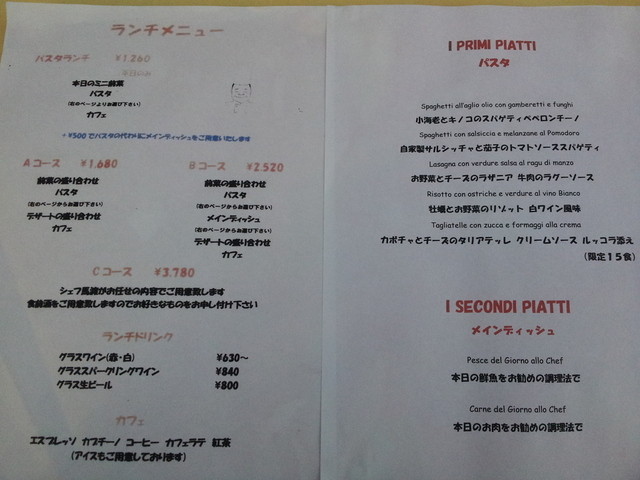 ランチメニュー
パスタランチ ¥1,260
本日のミニ前菜
パスタ
(右のページよりお選び下さい)
カフェ
+¥500でパスタの代わりにメインディッシュをご用意いたします
Aコース ¥1,680
前菜の盛り合わせ
パスタ
(右のページからお選び下さい)
デザートの盛り合わせ
カフェ
Bコース ¥2,520
前菜の盛り合わせ
パスタ
(右のページからお選び下さい)
メインディッシュ
(右のページからお選び下さい)
デザートの盛り合わせ
カフェ
Cコース ¥3,780
シェフ馬旗がお任せの内容でご用意致します
食前酒をご用意致しますのでお好きなものをお申し付け下さい
ランチドリンク
グラスワイン(赤・白) ¥630～
グラススパークリングワイン ¥840
グラス生ビール ¥800
カフェ
エスプレッソ カプチーノ コーヒー カフェラテ 紅茶
(アイスもご用意しております)
I PRIMI PIATTI
パスタ
Spaghetti all'aglio olio con gamberetti e funghi
小海老とキノコのスパゲティペペロンチーノ
Spaghetti con salsiccia e melanzane al Pomodoro
自家製サルシッチャと茄子のトマトソーススパゲティ
Lasagna con verdure salsa al ragu di manzo
お野菜とチーズのラザニア 牛肉のラグーソース
Risotto con ostriche e verdure al vino Bianco
牡蠣とお野菜のリゾット 白ワイン風味
Tagliatelle con zucca e formaggi alla crema
カボチャとチーズのタリアテッレ クリームソース ルッコラ添え
(限定15食)
I SECONDI PIATTI
メインディッシュ
Pesce del Giorno allo Chef
本日の鮮魚をお勧めの調理法で
Carne del Giorno allo Chef
本日のお肉をお勧めの調理法で